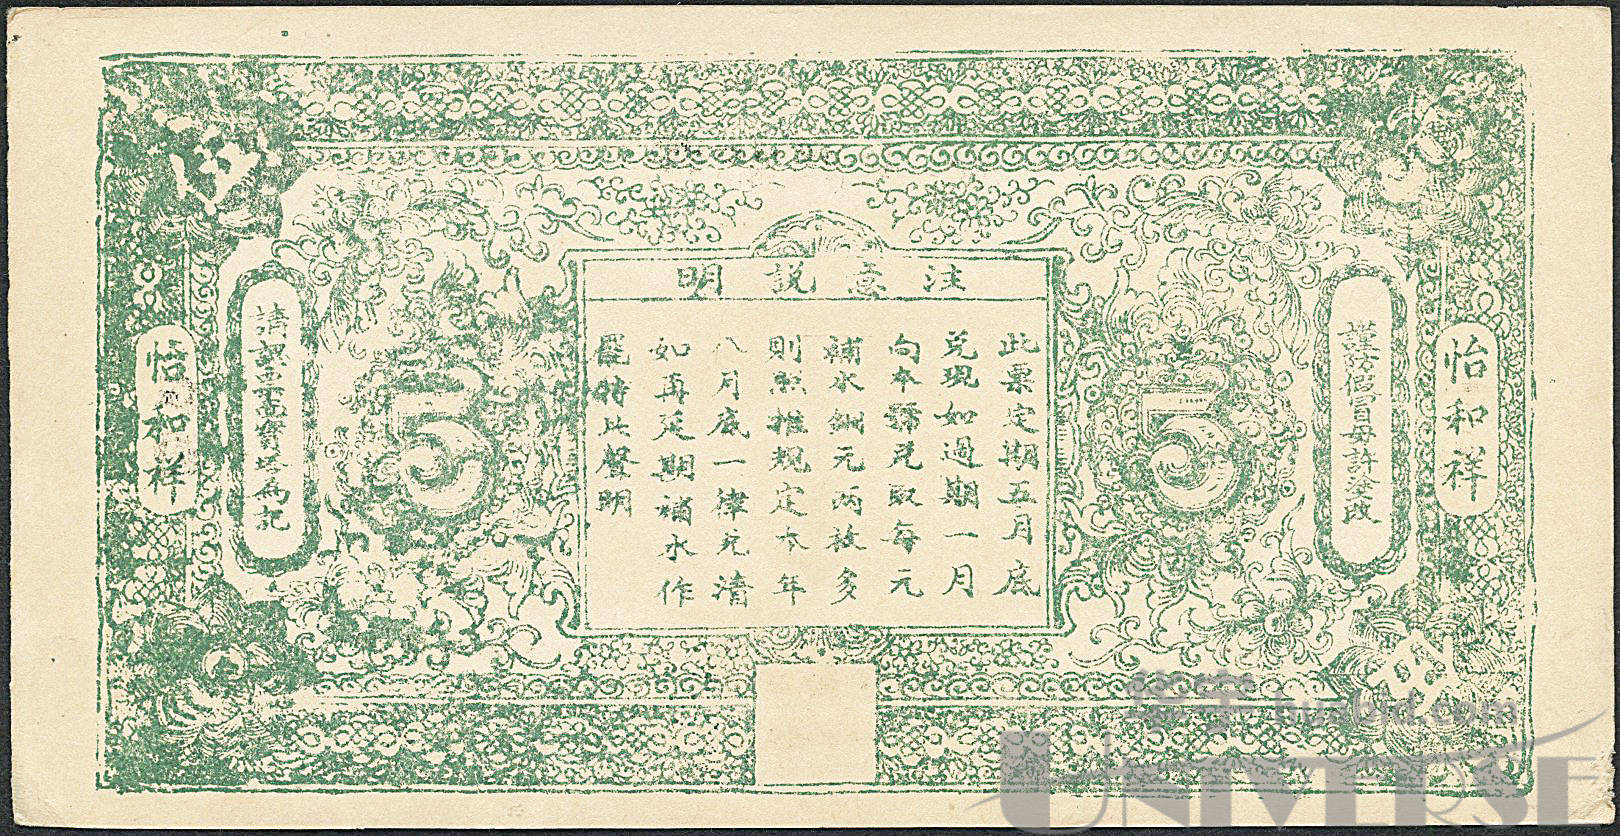 注意說明
此票定期五月底
兑現如過期一月
向本號兑取每元
補水銅元兩枚多
則照推规定本年
八月底一律兑清
如再延期補水作
罷特此聲明
謹防假冒毋許塗改
請認三潭寶塔為記
怡和祥
怡和祥
5
5
huabid.com
UNIVERSE